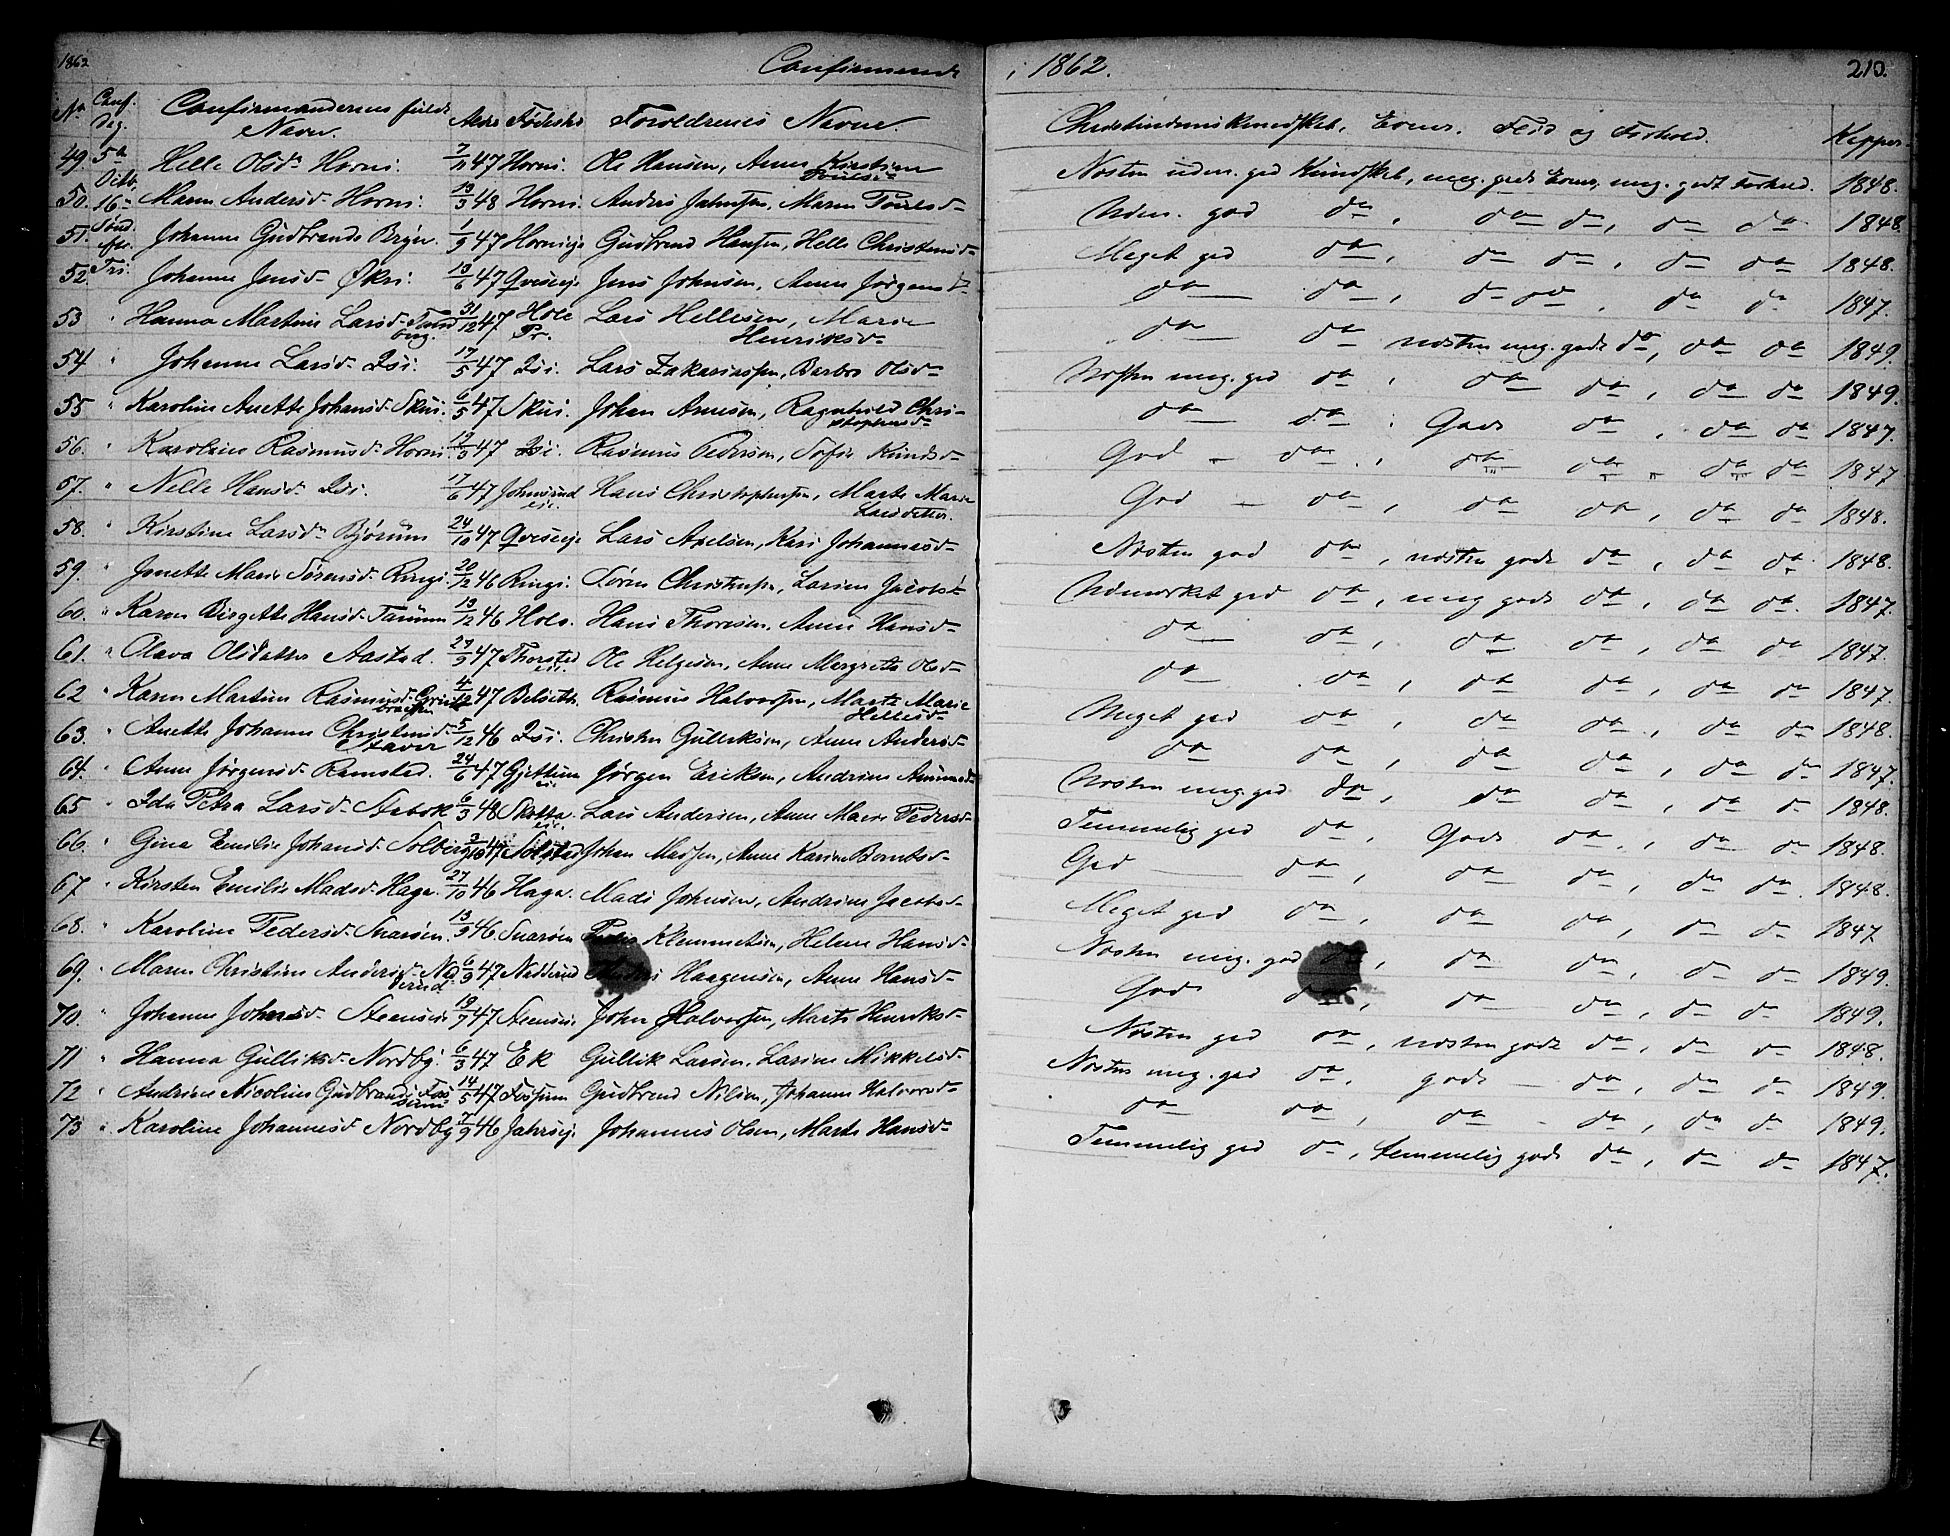 1862 Confirmerede i 1862. 210.
No Conf. Dag. Confirmandernes fulde Navn. Alder Fødested Forældrenes Navne. Christendomskundskab, Evner, Flid og Forhold. Kopper
49. 5te Helle Olsdr Horni. 7/11 47 Horni. Ole Hansen, Anne Kirstine Poulsd. Næsten udm. god Kundskab, meg. gode Evner, meg. godt Forhold. 1848.
50. Octb. 16- Maren Andersd- Horni. 13/3 48 Horni. Anders Jahnsen, Maren Poulsd- Udm. god do, do do, do do 1848.
51. Sønd. efter Johanne Gudbrands Bryn. 1/9 47 Horni eje Gudbrand Hansen, Helle Christensd- Meget god do, do do, do do 1848.
52. Tri. Johanne Jensd- Økri. 13/6 47 Qverseje Jens Johnsen, Anne Jørgensd- do do, do do, do do 1847.
53 " Hanna Martine Larsd- Tandberg. 31/12 47 Hole Pr. Lars Hellesen, Marie Henriksd- do do næsten meg. gode do, do do 1849.
54 " Johanne Larsd- Isi. 17/5 47 Isi. Lars Zakariassen, Barbro Olsd- Næsten meg. god do, do do, do do 1849.
55 " Karoline Anette Johansd- Skui. 6/5 47 Skui. Johan Arnesen, Ragnhild Christophersd- do do, Gode do, do do 1847.
56. " Karoline Rasmusd- Horni 12/9 47 Isi. Rasmus Pedersen, Sofie Knudsd- God - do, do do " do do 1847
57. " Nelle Hansd- Isi. 17/6 47 Johnsrud eie. Hans Christophersen, Marte Marie Larsdatter. God - do, do do, do do 1848.
58. " Kirstine Larsd- Bjørum 24/10 47 Qverseje Lars Axelsen, Kari Johannesd- Næsten god do, næsten gode do, do do 1848.
59. " Jonette Marie Sørensd- Ringi. 20/12 46 Ringi. Søren Christensen, Larine Jacobsd- Udmærket god do, meg gode do, do do. 1847.
60. " Karen Birgette Hansd- Tanum 13/12 46 Holo. Hans Thoresen, Anne Hansd- do do, do do, do do 1847.
61. " Olava Olsdatter Aastad. 27/9 47 Thorsted eie. Ole Helgesen, Anne Margrethe Olsd- do do, do do, do do 1847.
62 " Karen Martine Rasmusd- 4/12 47 Belseth. Rasmus Halvorsen, Marte Marie Hellesd- Meget god do, do do, do do 1848.
63. " Anette Johanne Christensd- Staver 5/12 46 Isi. Christen Gulliksen, Anne Andersd- do do, do do, do do 1847.
64. " Anne Jørgensd- Ramstad. 24/6 47 Gjettum ei. Jørgen Ericksen, Andrine Amundsd- Næsten meg. god do, do do, do do 1848.
65 " Ida Petra Larsd- Stabek 6/3 48 Skotta ei. Lars Andersen, Anne Marie Pedersd- Temmelig god do, Gode do, do do 1848.
66. " Gina Emilie Johansd- Solberg 3/10 47 Solstad Johan Madsen, Anne Karine Berntsd- God do, do do, do do. 1848.
67 " Kirsten Emilie Madsd- Haga. 27/10 46 Haga. Mads Johnsen, Andrine Jacobsd- Meget god do, do do, do do 1847
68. " Karoline Pedersd- Snarøen. 13/9 46. Snarøen Peder Klemmetsen, Helene Hansd- Næsten meg. god do, do do, do do 1849.
69. " Maren Christine Andersd- Nadderud 6/9 47 Nadderud Anders Haagensen, Anne Hansd- God do, do do, do do 1849.
70. " Johanne Johnsd- Steensei 19/9 47 Steensei. John Halvorsen, Marte Henriksd- Næsten god do, næsten gode do, do do 1848.
71 " Hanna Gulliksd- Nordby. 6/3 47 Ek Gullik Larsen, Larine Mikkelsd- Næsten meg. god do, gode - do, do do 1849.
72 " Andrine Nicoline Gudbrandsd- Fossum 14/5 47 Fossum Gudbrand Nilsen, Johanne Halvorsd- do do, do - do, do do 1849.
73 " Karoline Johannesd- Nordby 7/9 46 Jahrseje Johannes Olsen, Marte Hansd- Temmelig god do, temmelig gode do, do do 1847.